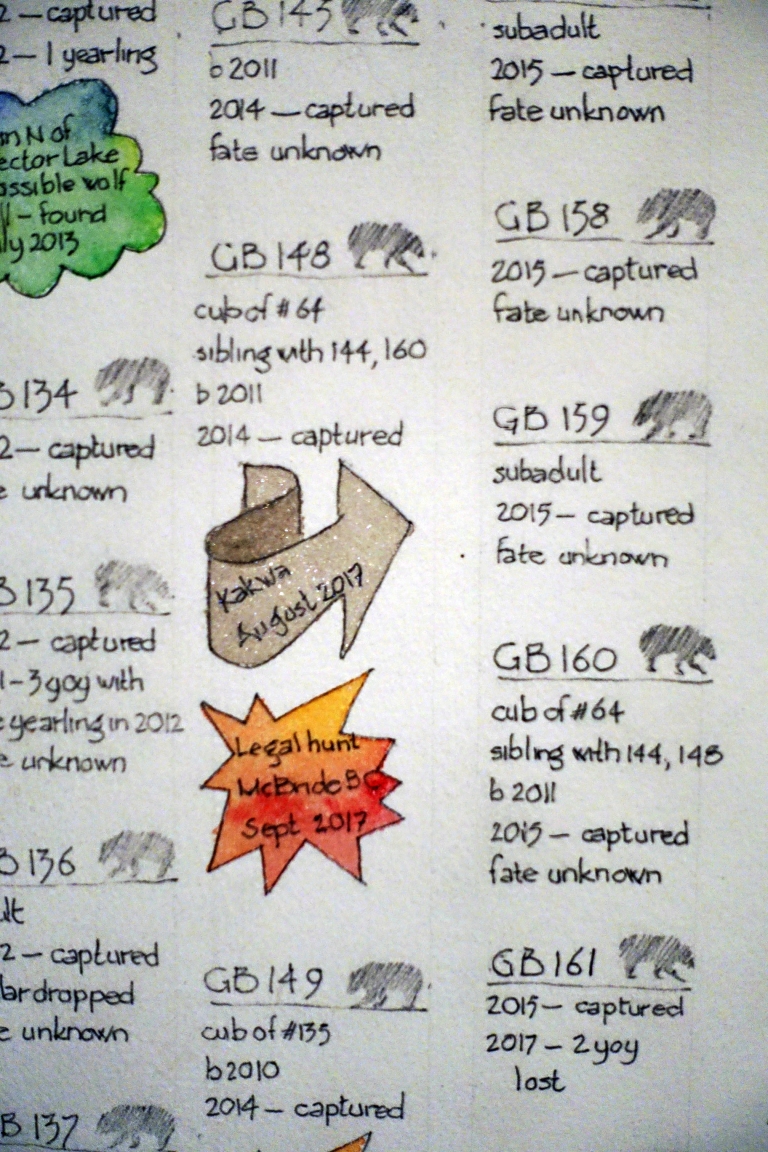 2 — captured
2 — 1 yearling
N of
Lake
wolf
– found
2013
134
2 — captured
unknown
135
2 — captured
– 3 yoy with
yearling in 2012
unknown
136
2 — captured
dropped
unknown
137
GB 145
b 2011
2014 — captured
fate unknown
GB 148
cub of # 64
sibling with 144, 160
b 2011
2014 — captured
Kakwa
August 2017
Legal hunt
McBride BC
Sept 2017
GB 149
cub of #135
b 2010
2014 — captured
subadult
2015 — captured
fate unknown
GB 158
2015 — captured
fate unknown
GB 159
subadult
2015 — captured
fate unknown
GB 160
cub of #64
sibling with 144, 148
b 2011
2015 — captured
fate unknown
GB 161
2015 — captured
2017 — 2 yoy
lost